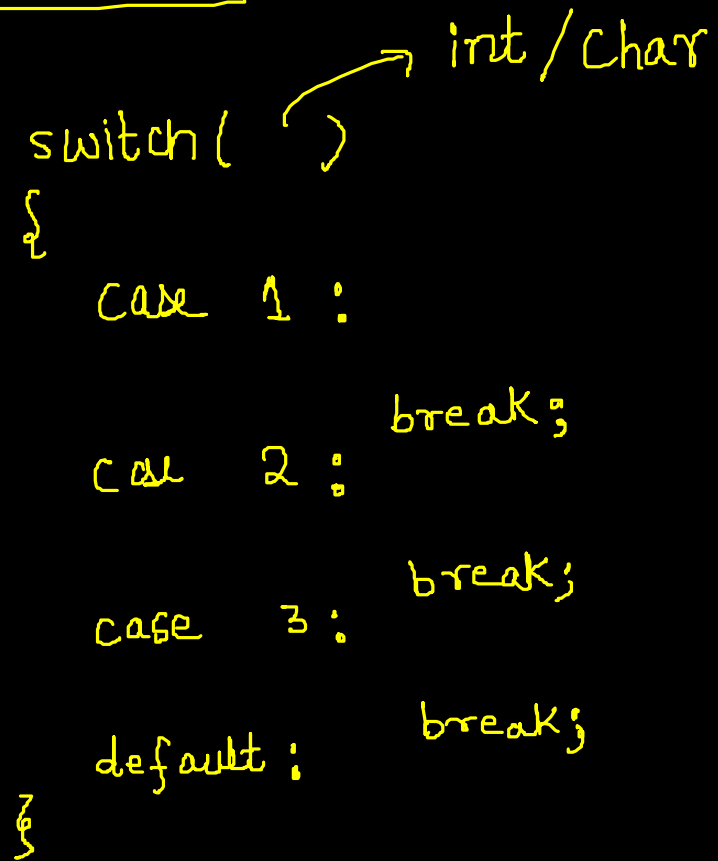 int/char
switch( )
{
case 1 :
break;
case 2 :
break;
case 3 :
break;
default :
}